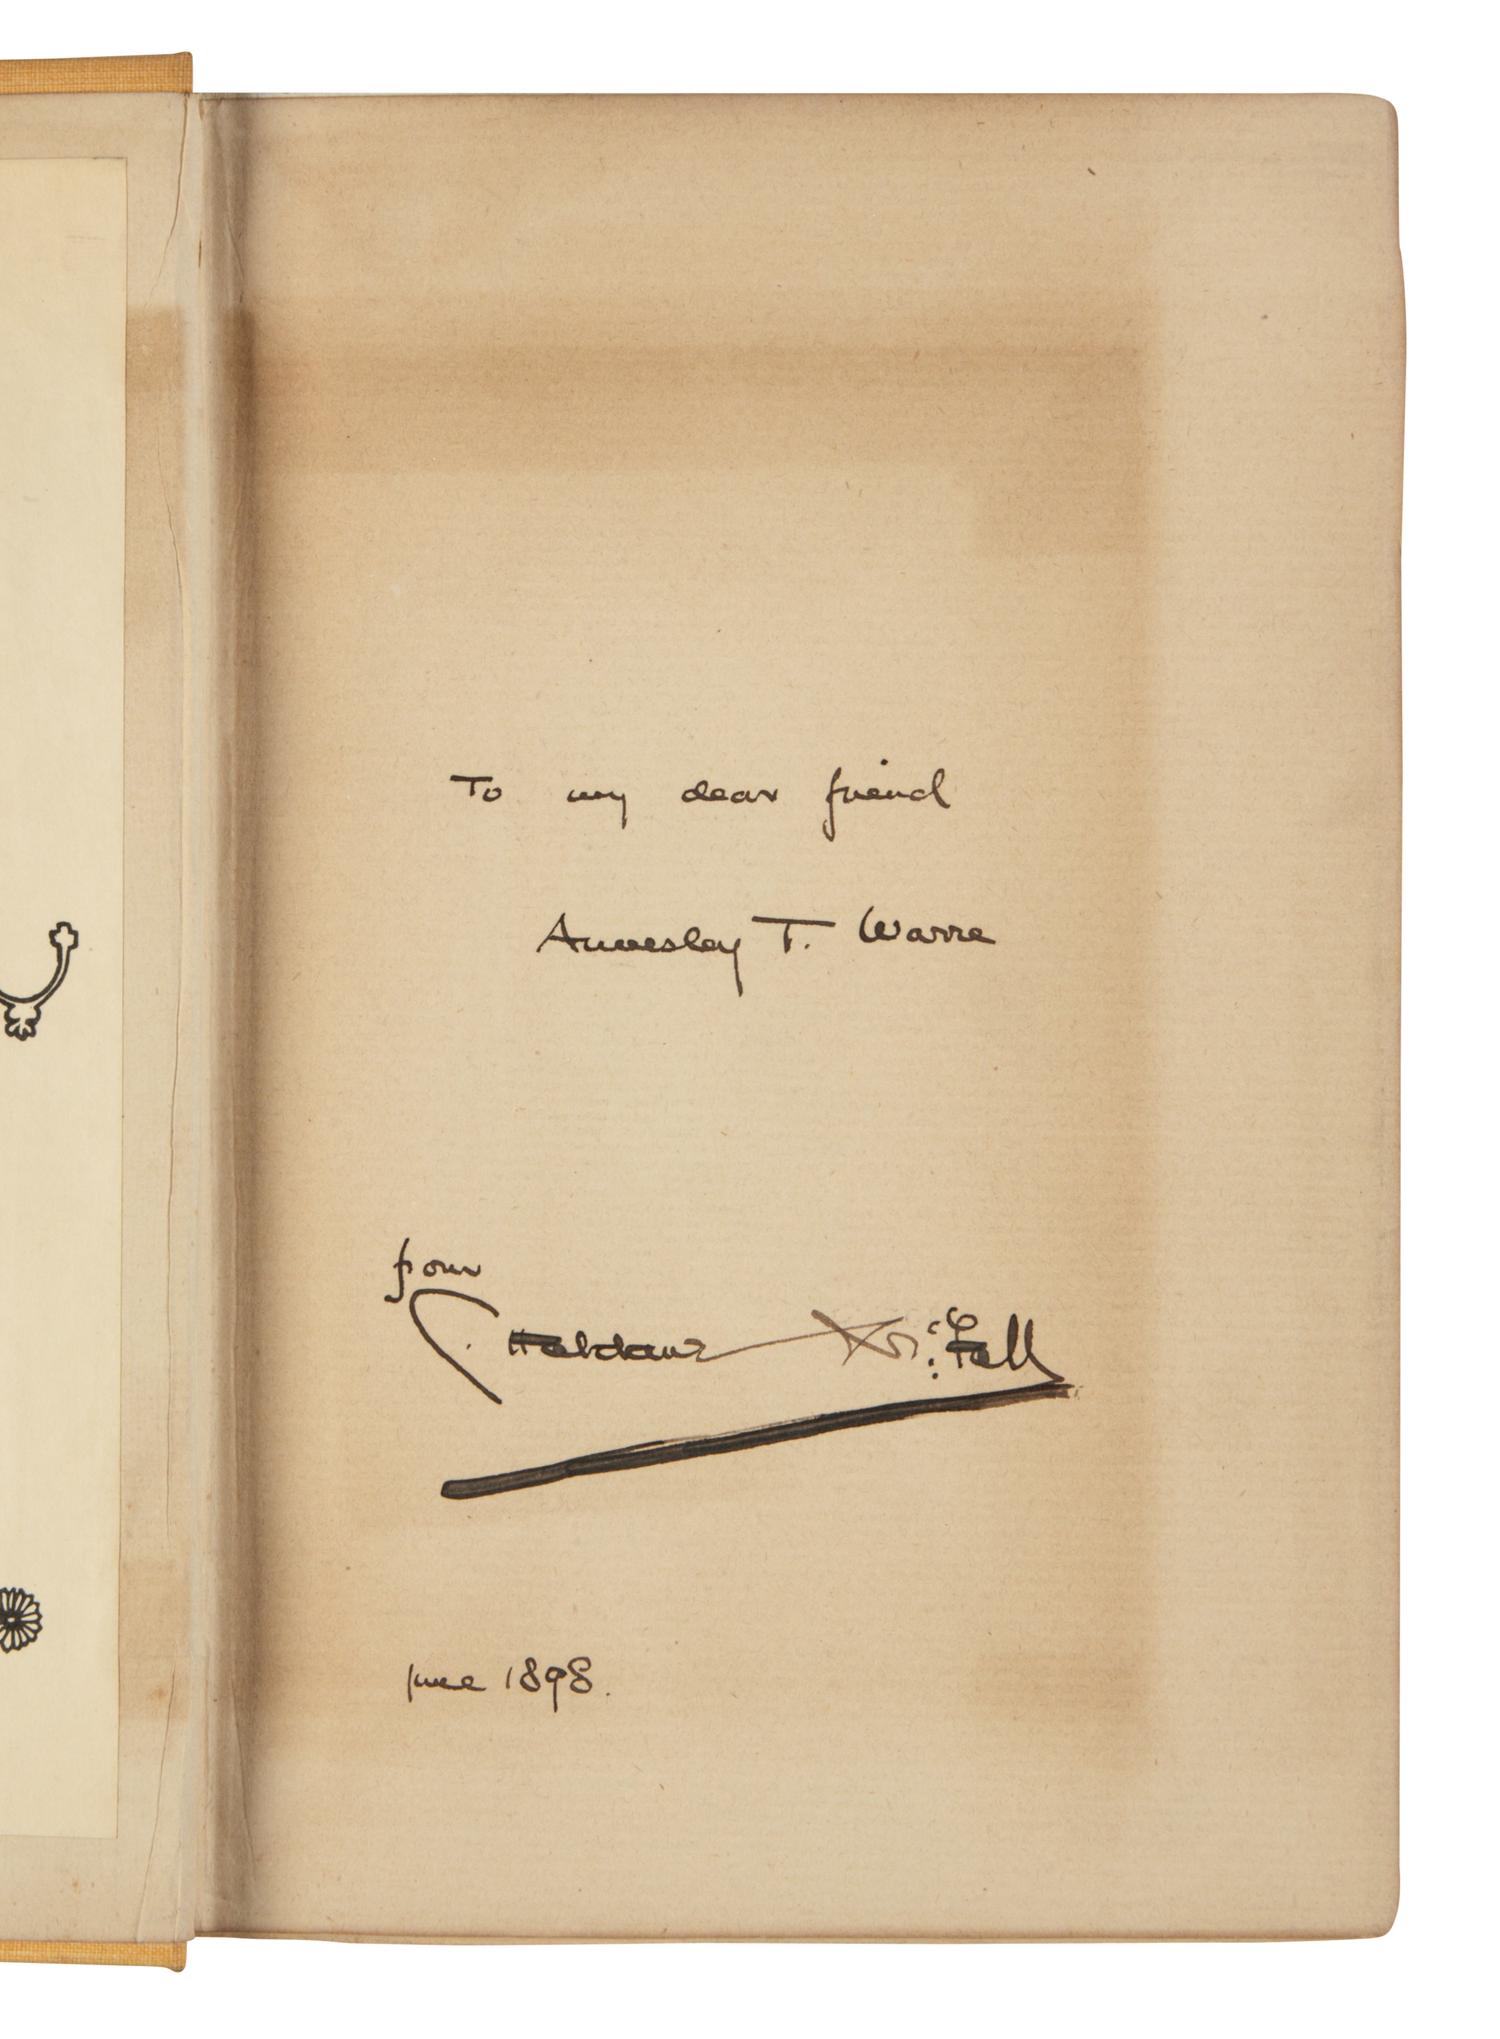 To my dear friend
Annesley T. Warre
from
Haldane Mc:Fall
June 1898.